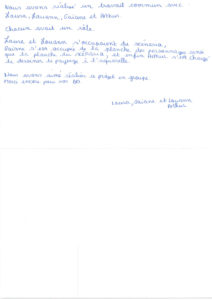 Nous avons réalisé un travail commun avec
Laura, Louann, Saïane et Arthur.
Chacun avait un rôle.
Laura et Louann s'occupaient du scénario,
Saïane s'est occupée de la planche des personnages ainsi
que la planche du scénario, et enfin Arthur s'est chargé
de dessiner le paysage à l'aquarelle.
Nous avons aimé réaliser ce projet en groupe.
Laura, Saïane et Louann
Arthur